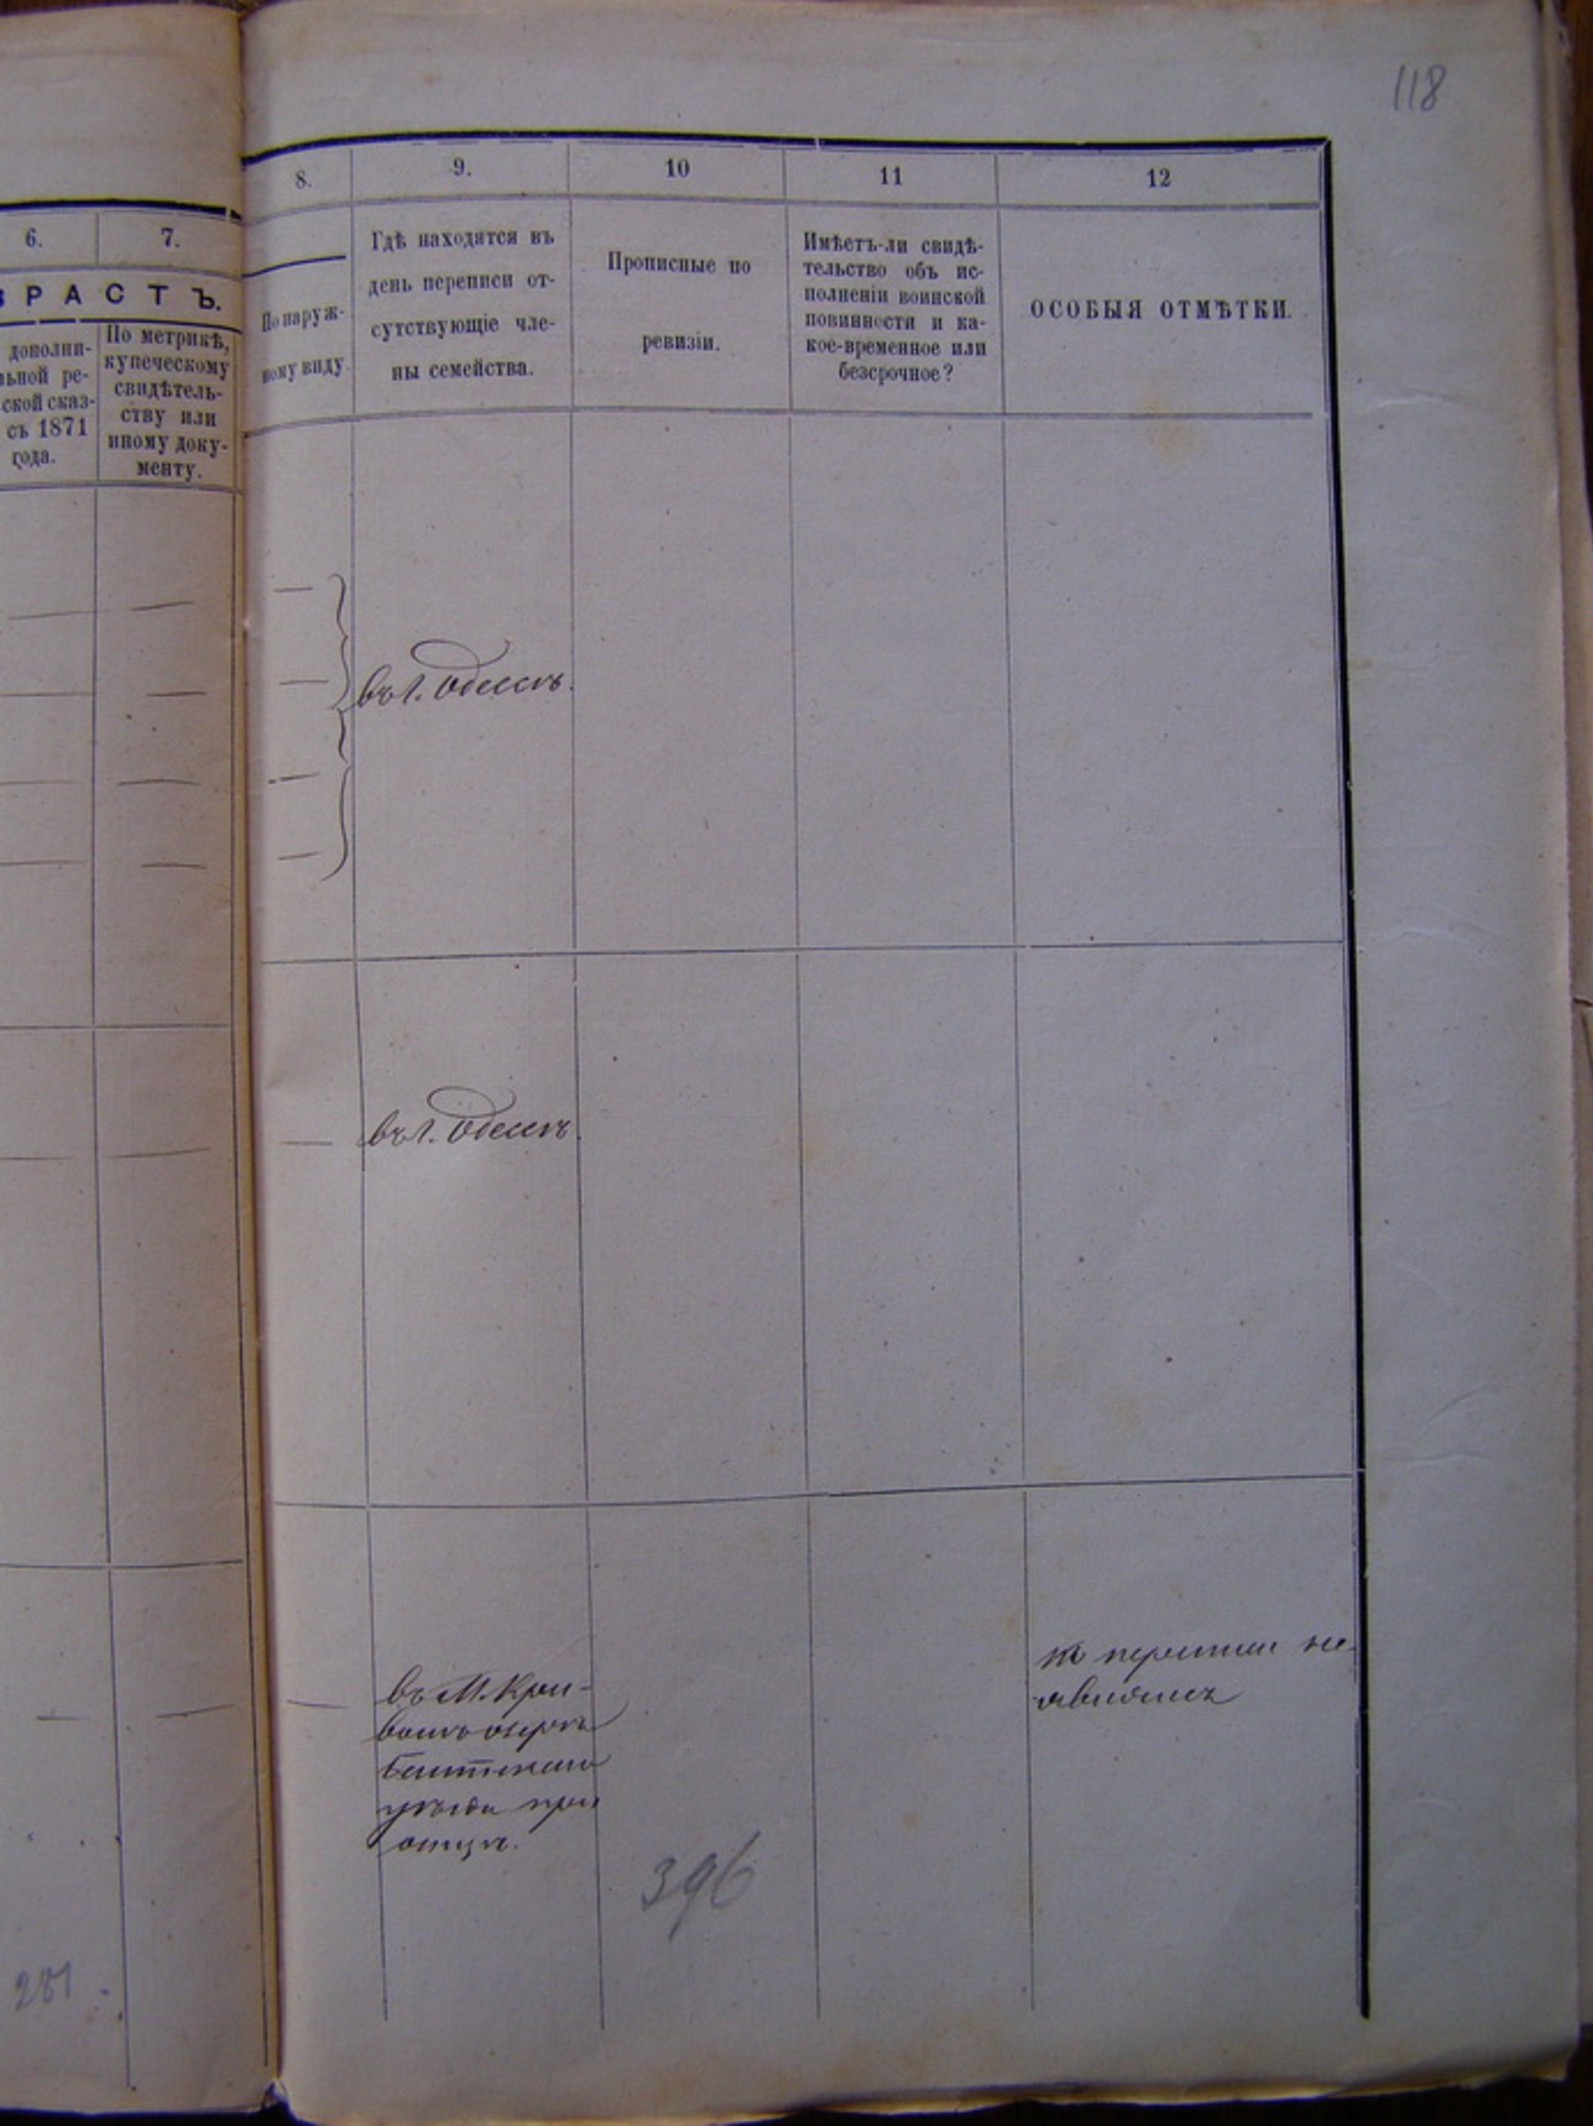 118
6.
7.
8.
9.
10
11
12
ЗРАСТЪ.
дополни-
ьной ре-
ской сказ-
съ 1871
года.
По метрикѣ,
купеческому
свидѣтель-
ству или
иному доку-
менту.
По наруж-
ному виду.
Гдѣ находятся въ
день переписи от-
сутствующіе чле-
ны семейства.
Прописные по
ревизіи.
Имѣетъ-ли свидѣ-
тельство объ ис-
полненіи воинской
повинности и ка-
кое-временное или
безсрочное?
ОСОБЫЯ ОТМѢТКИ.
въ г. Одессѣ.
въ г. Одессѣ.
въ М. Кри-
вомъ озерѣ
Балтскаго
уѣзда при
отцѣ.
къ переписи не
явились
396
281